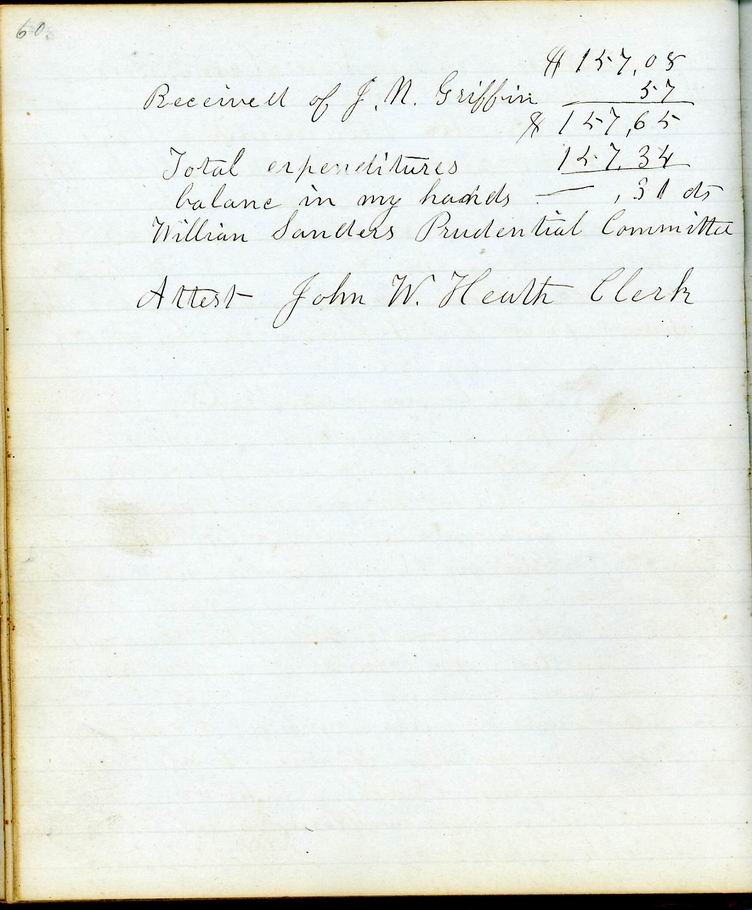 60
$157,08
Received of J. N. Griffin 57
$157,65
Total expenditures 157.34
balanc in my hands — ,31 cts
Willian Sanders Prudential Committee
Attest John W. Heath Clerk